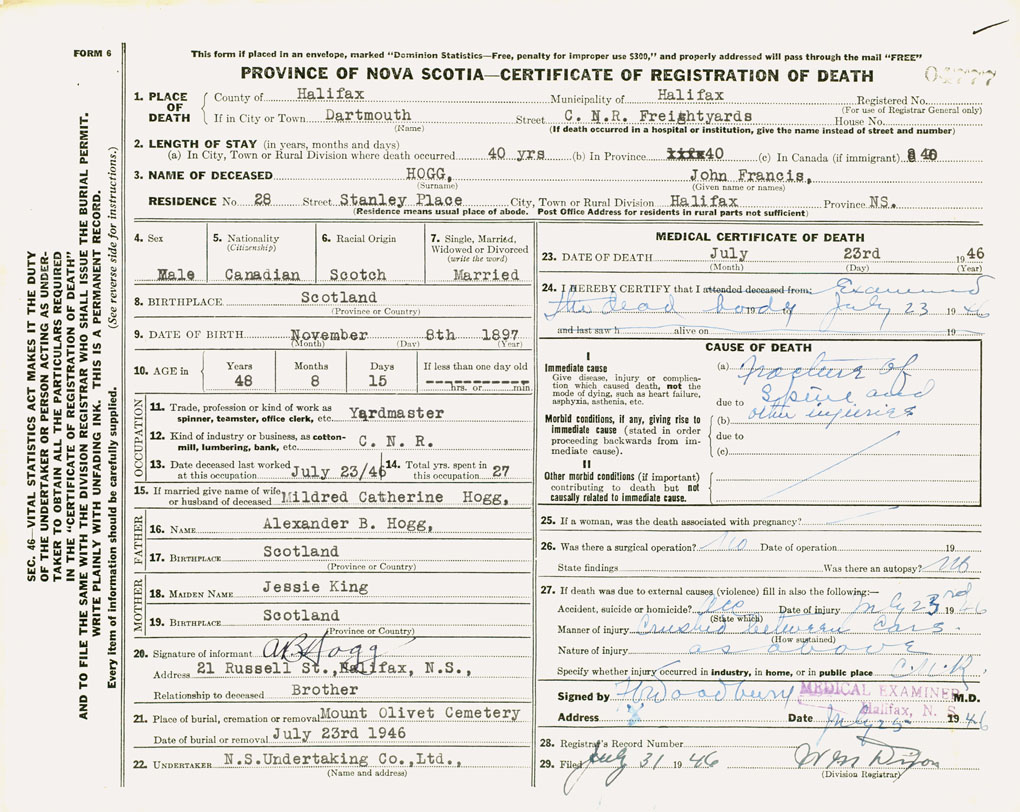 FORM 6
This form if placed in an envelope, marked "Dominion Statistics—Free, penalty for improper use $300," and properly addressed will pass through the mail "FREE"
PROVINCE OF NOVA SCOTIA—CERTIFICATE OF REGISTRATION OF DEATH
SEC. 46—VITAL STATISTICS ACT MAKES IT THE DUTY
OF THE UNDERTAKER OR PERSON ACTING AS UNDER-
TAKER TO OBTAIN ALL THE PARTICULARS REQUIRED
IN THE "CERTIFICATE OF REGISTRATION OF DEATH"
AND TO FILE THE SAME WITH THE DIVISION REGISTRAR WHO SHALL ISSUE THE BURIAL PERMIT.
WRITE PLAINLY WITH UNFADING INK. THIS IS A PERMANENT RECORD.
Every item of information should be carefully supplied. (See reverse side for instructions.)
1. PLACE OF DEATH
County of Halifax Municipality of Halifax Registered No.
(For use of Registrar General only)
If in City or Town Dartmouth Street C. N.R. Freightyards House No.
(Name) (If death occurred in a hospital or institution, give the name instead of street and number)
2. LENGTH OF STAY (in years, months and days)
(a) In City, Town or Rural Division where death occurred 40 yrs (b) In Province 40 (c) In Canada (if immigrant) 40
3. NAME OF DECEASED HOGG, John Francis,
(Surname) (Given name or names)
RESIDENCE No. 28 Street Stanley Place City, Town or Rural Division Halifax Province NS.
(Residence means usual place of abode. Post Office Address for residents in rural parts not sufficient)
4. Sex
Male
5. Nationality
(Citizenship)
Canadian
6. Racial Origin
Scotch
7. Single, Married,
Widowed or Divorced
(write the word)
Married
8. BIRTHPLACE Scotland
(Province or Country)
9. DATE OF BIRTH November 8th 1897
(Month) (Day) (Year)
10. AGE in
Years Months Days If less than one day old
48 8 15 hrs. or min.
OCCUPATION
11. Trade, profession or kind of work as
spinner, teamster, office clerk, etc. Yardmaster
12. Kind of industry or business, as cotton-
mill, lumbering, bank, etc. C. N. R.
13. Date deceased last worked
at this occupation July 23/46
14. Total yrs. spent in
this occupation 27
15. If married give name of wife
or husband of deceased Mildred Catherine Hogg,
FATHER
16. NAME Alexander B. Hogg,
17. BIRTHPLACE Scotland
(Province or Country)
MOTHER
18. MAIDEN NAME Jessie King
19. BIRTHPLACE Scotland
(Province or Country)
20. Signature of informant AB Hogg
Address 21 Russell St., Halifax, N.S.,
Relationship to deceased Brother
21. Place of burial, cremation or removal Mount Olivet Cemetery
Date of burial or removal July 23rd 1946
22. UNDERTAKER N.S.Undertaking Co.,Ltd.,
(Name and address)
MEDICAL CERTIFICATE OF DEATH
23. DATE OF DEATH July 23rd 1946
(Month) (Day) (Year)
24. I HEREBY CERTIFY that I attended deceased from: Examined
the dead body 19 July 23 1946
and last saw h alive on 19
CAUSE OF DEATH
I
Immediate cause
Give disease, injury or complica-
tion which caused death, not the
mode of dying, such as heart failure,
asphyxia, asthenia, etc.
(a) Fracture of
due to Spine and
Morbid conditions, if any, giving rise to
immediate cause (stated in order
proceeding backwards from im-
mediate cause).
(b) other injuries
due to
(c)
II
Other morbid conditions (if important)
contributing to death but not
causally related to immediate cause.
25. If a woman, was the death associated with pregnancy?
26. Was there a surgical operation? No Date of operation 19
State findings Was there an autopsy? No
27. If death was due to external causes (violence) fill in also the following:—
Accident, suicide or homicide? Acc Date of injury July 23rd 1946
(State which)
Manner of injury Crushed between Cars.
(How sustained)
Nature of injury as above
Specify whether injury occurred in industry, in home, or in public place C.N.R.
Signed by Woodbury MEDICAL EXAMINER M.D.
Halifax, N. S.
Address Date July 25 1946
28. Registrar's Record Number
29. Filed July 31 1946 WM Dixon
(Division Registrar)